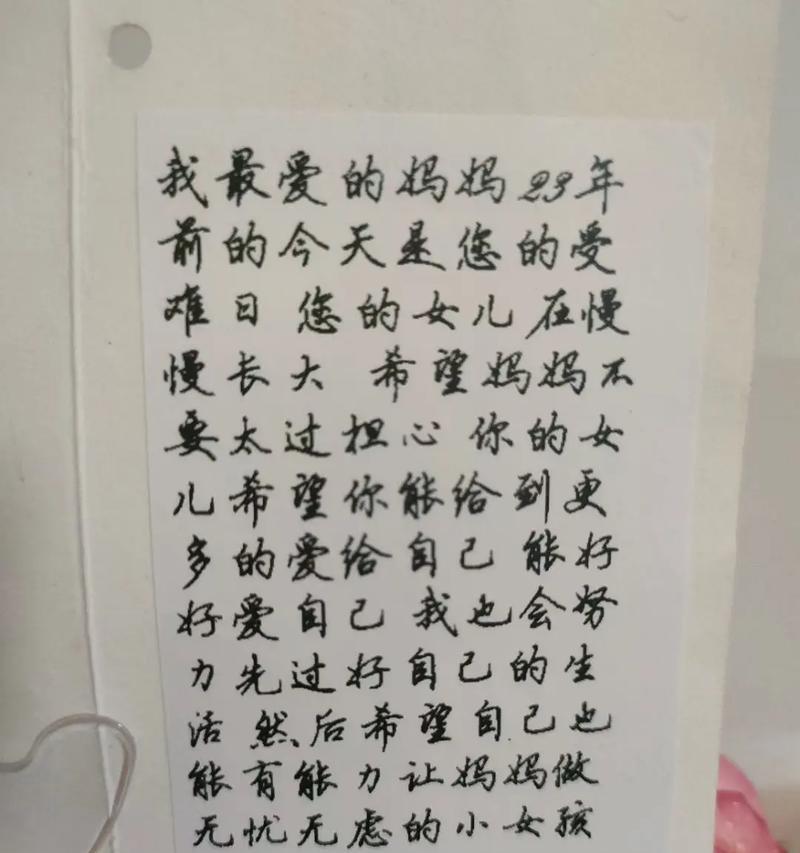 我最爱的妈妈23年
前的今天是您的受
难日 您的女儿在慢
慢长大 希望妈妈不
要太过担心 你的女
儿希望你能给到更
多的爱给自己 能好
好爱自己 我也会努
力先过好自己的生
活 然后希望自己也
能有能力让妈妈做
无忧无虑的小女孩